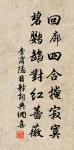 回廊四合掩寂寞
碧鸚鵡對紅薔薇
李商隱日射詩與佩喜